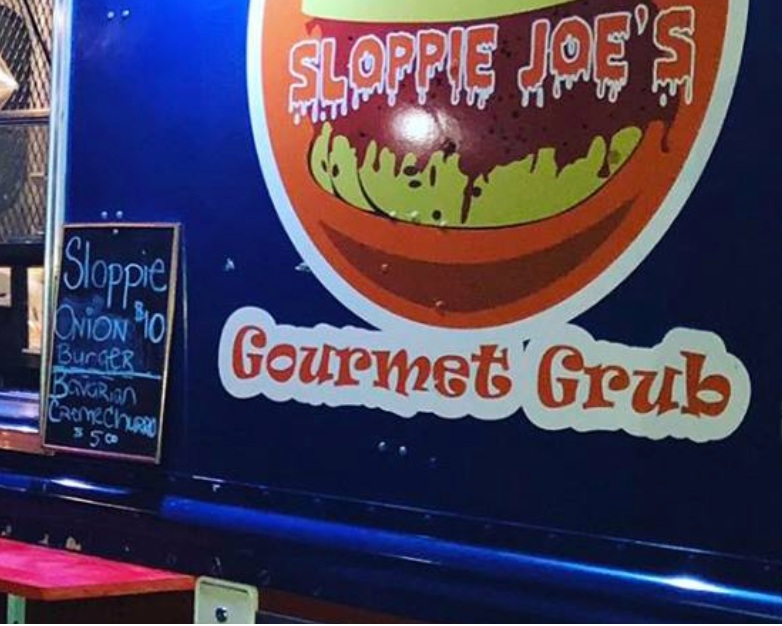 SLOPPIE JOE'S
Gourmet Grub
Sloppie
ONION $10
Burger
Bavarian
Creme Churro
$ 5.00